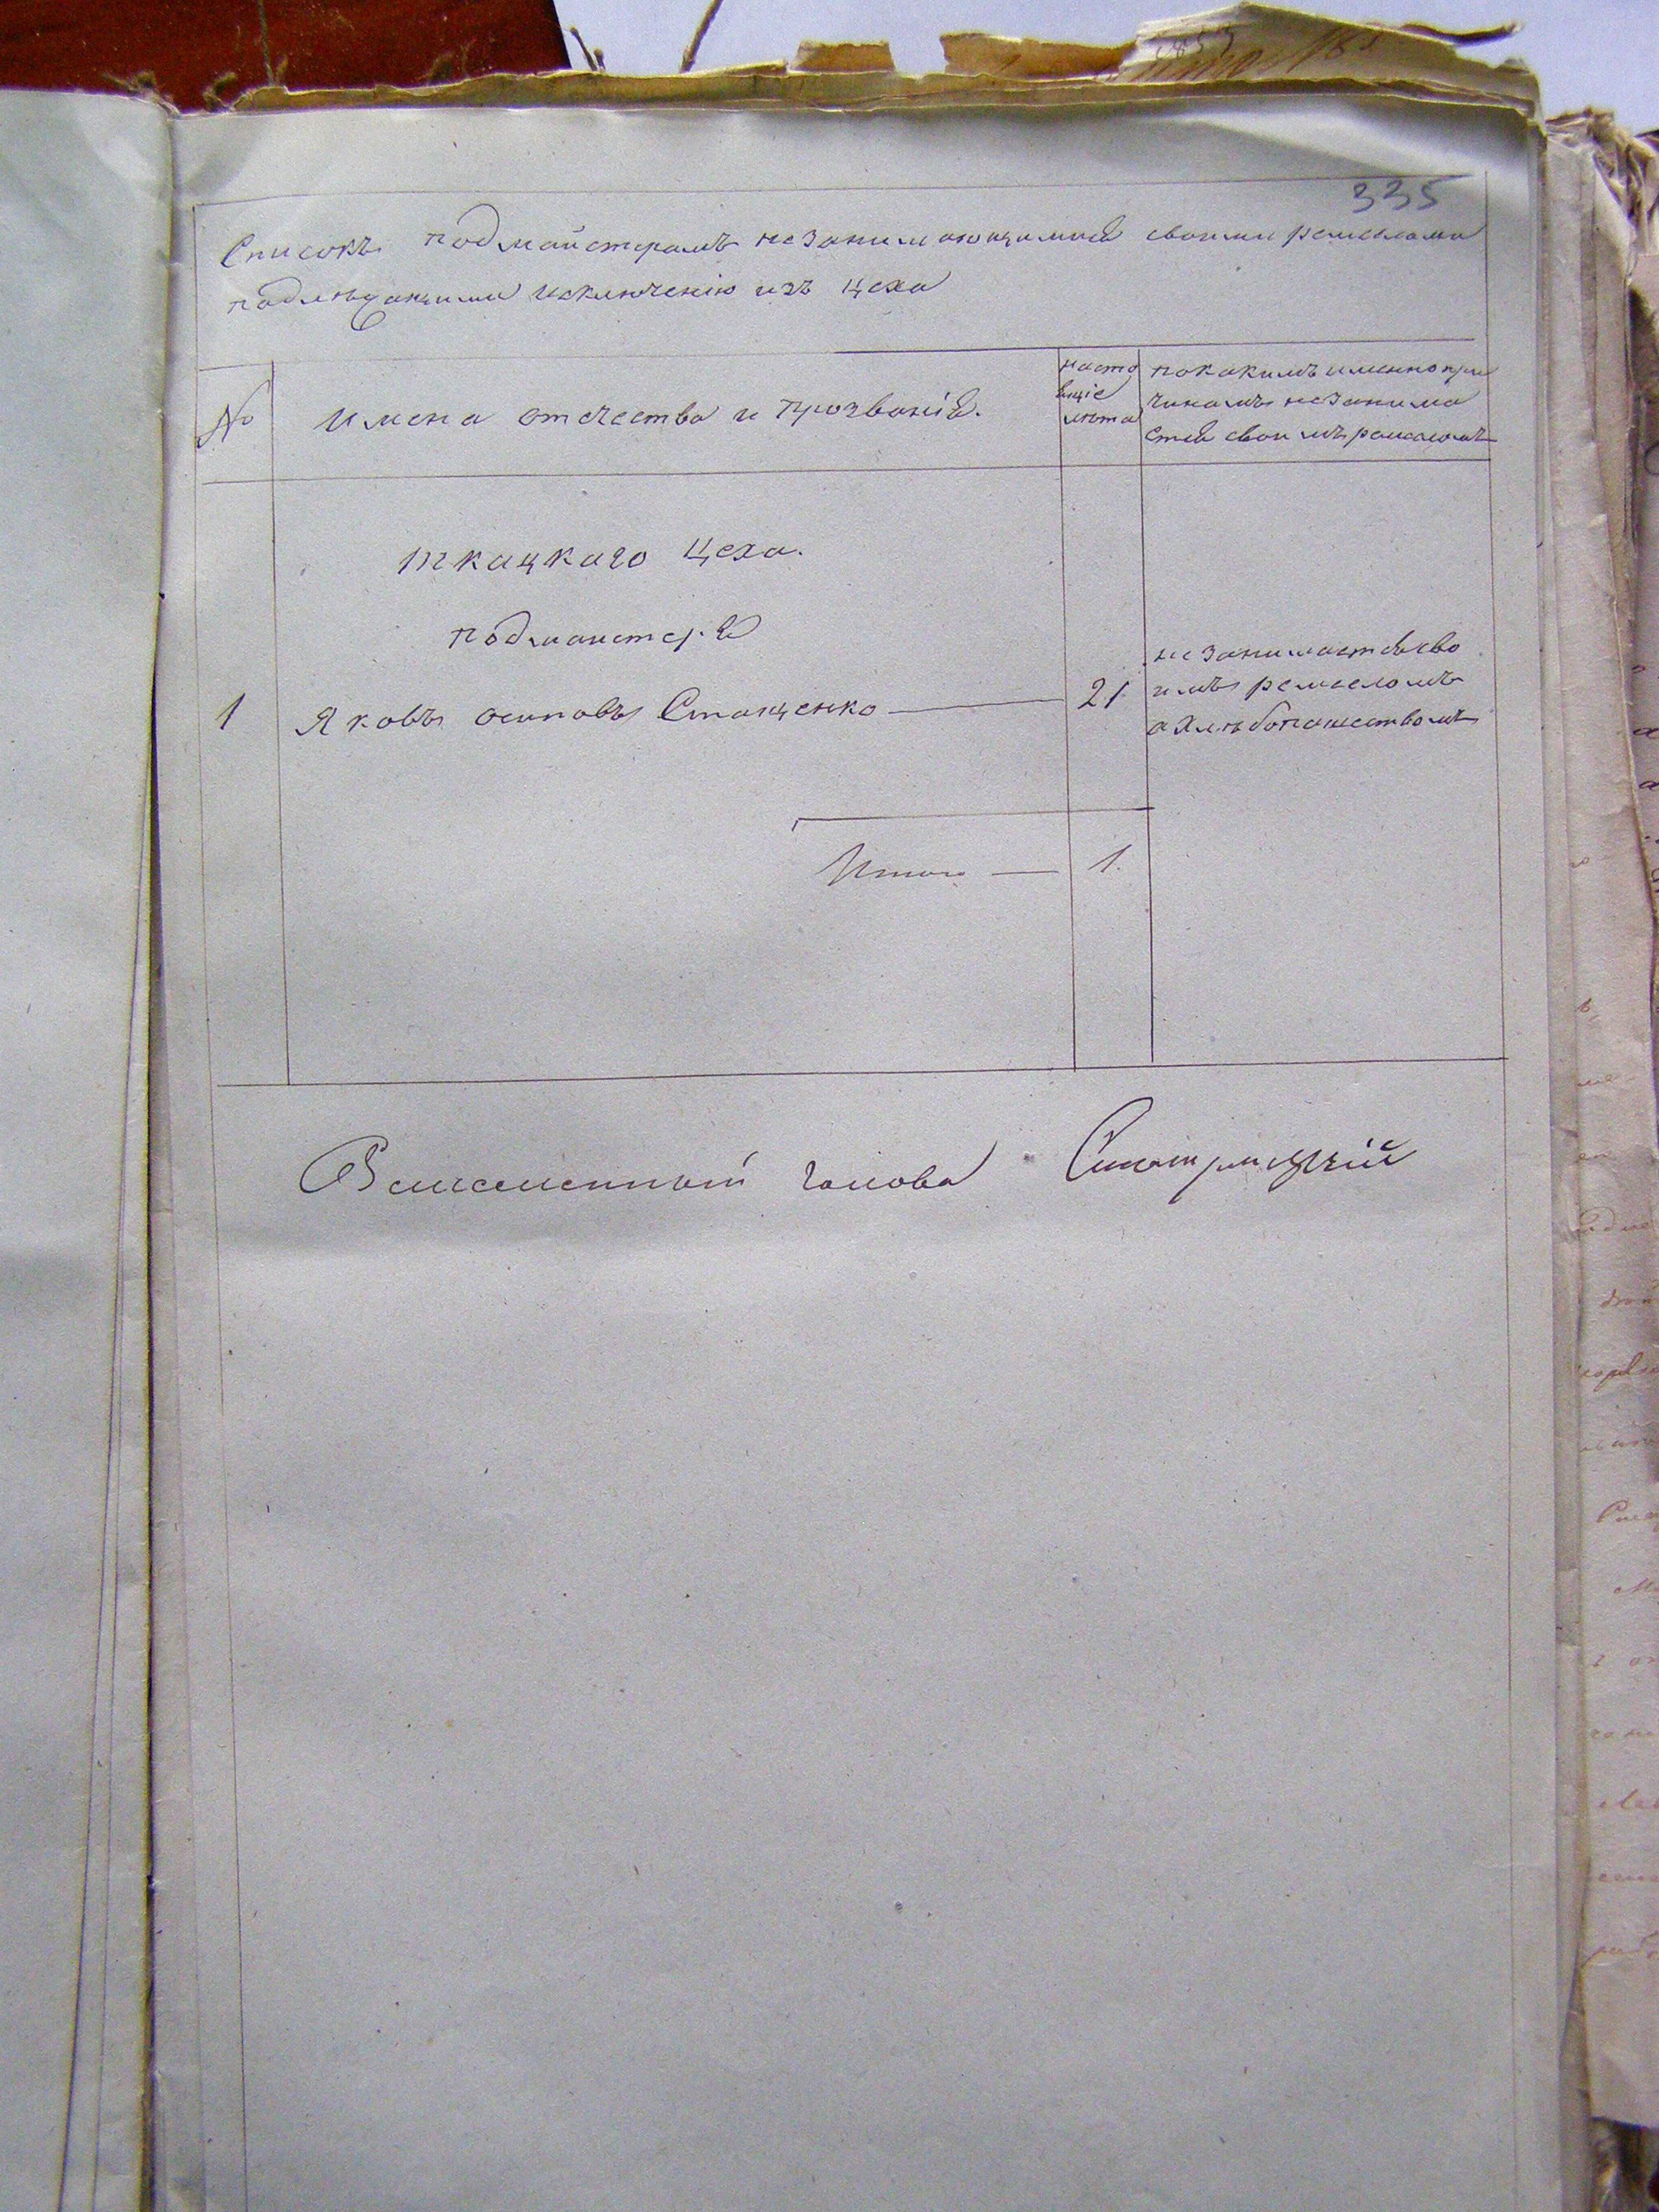 335
Списокъ подмайстрамъ незанимающимися своими ремеслами
подлѣжащими изключенію изъ цеха
№
Имена отчества и прозванія.
насто
ящіе
лѣта
покакимъ именно при
чинамъ незанима
ется своимъ ремесломъ
Ткацкаго Цеха.
подмайстеря
1 Яковъ осиповъ Стаценко 21
не занимается сво
имъ ремесломъ
а хлѣбопашествомъ
Итого 1.
Ремесленный голова